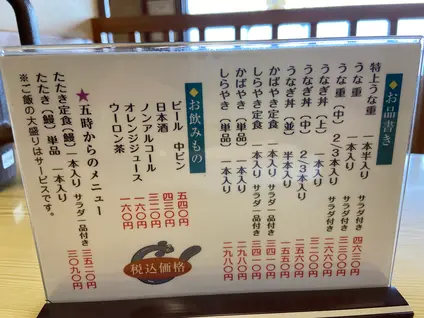 お品書き
特上うな重 一本半入り サラダ付き 四六三〇円
うな重 一本入り サラダ付き 三五二〇円
うな重(中) 2/3本入り サラダ付き 二六六〇円
うなぎ丼(上) 一本入り 三一〇〇円
うなぎ丼(中) 2/3本入り 二五六〇円
うなぎ丼(並) 半本入り 一五五〇円
かばやき定食 一本入り サラダ一品付き 三四一〇円
しらやき定食 一本入り サラダ一品付き 三四一〇円
かばやき(単品) 一本入り 二九八〇円
しらやき(単品) 一本入り 二九八〇円
お飲みもの
ビール 中ビン 五四〇円
日本酒 四二〇円
ノンアルコール 三二〇円
オレンジジュース 一六〇円
ウーロン茶 一六〇円
★五時からのメニュー
たたき定食(鰻)一本入り サラダ一品付き 三五二〇円
たたき(鰻)単品 一本入り 三〇九〇円
※ご飯の大盛りはサービスです。
税込価格